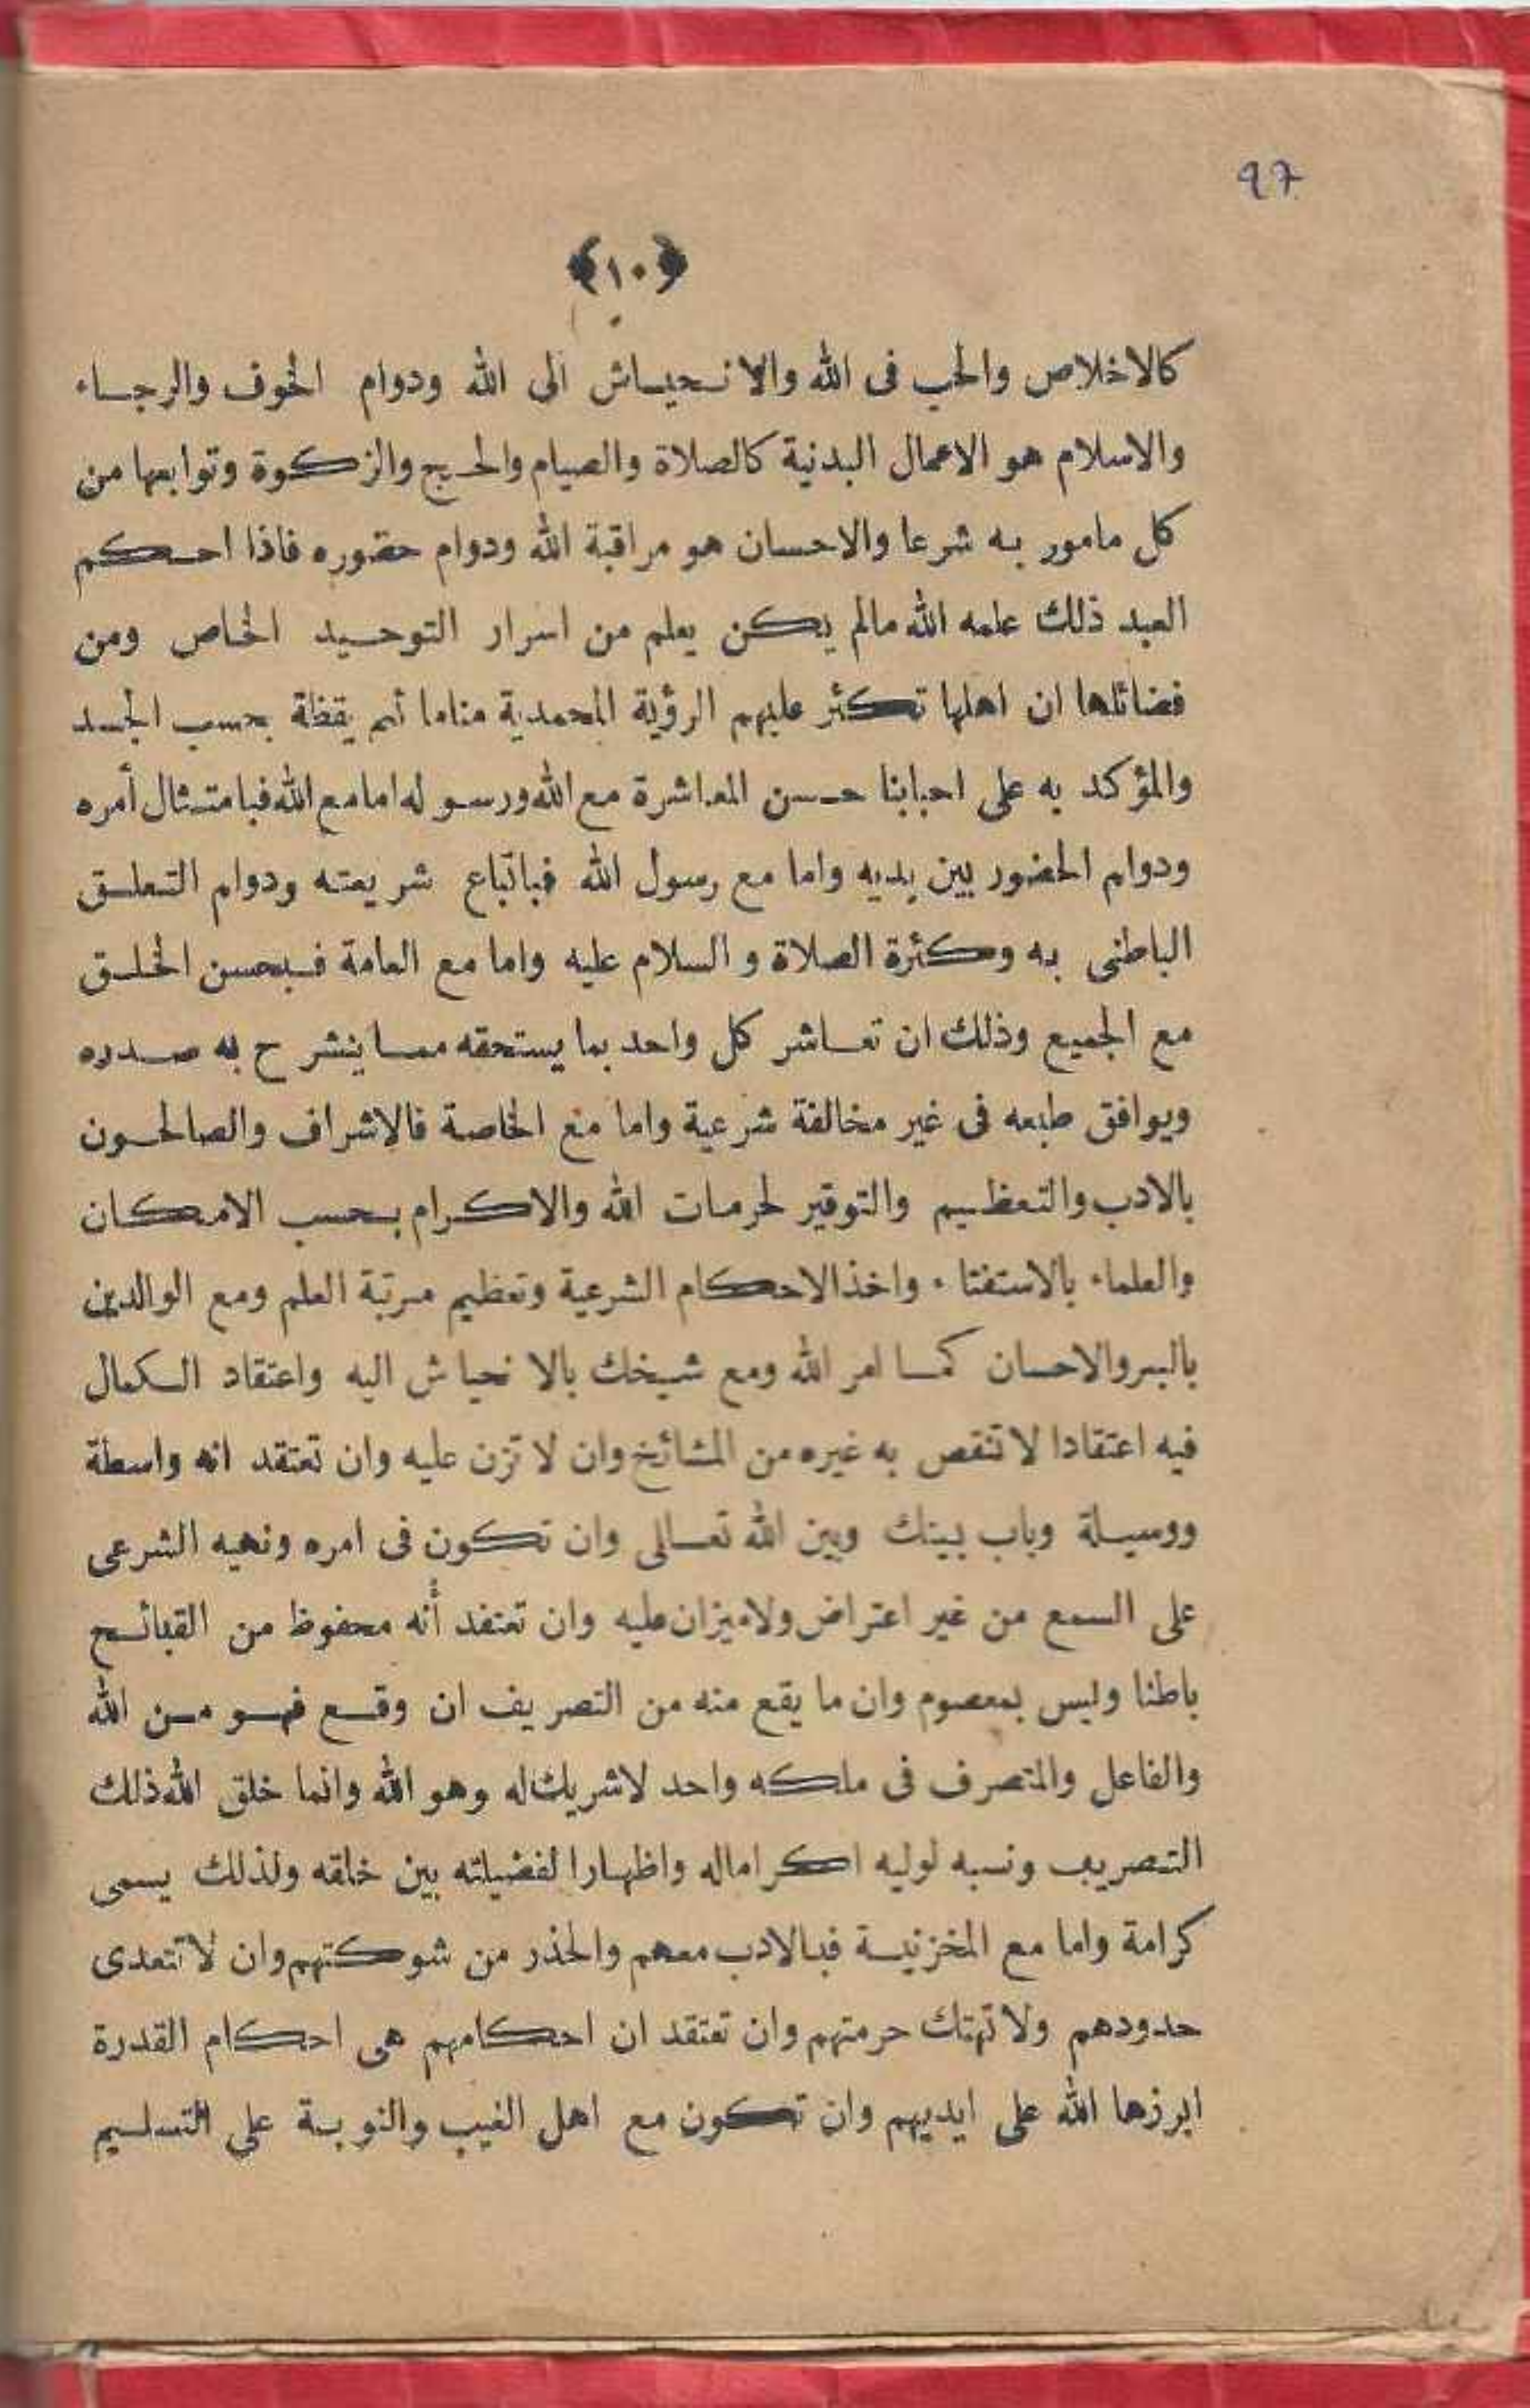 97
﴿١٠﴾
كالاخلاص والحب فى الله والانحياش الى الله ودوام الخوف والرجاء
والاسلام هو الاعمال البدنية كالصلاة والصيام والحج والزكوة وتوابعها من
كل مامور به شرعا والاحسان هو مراقبة الله ودوام حضوره فاذا احكم
العبد ذلك علمه الله مالم يكن يعلم من اسرار التوحيد الخاص ومن
فضائلها ان اهلها تكثر عليهم الرؤية المحمدية مناما ثم يقظة بحسب الجد
والمؤكد به على احبابنا حسن المعاشرة مع الله ورسوله اما مع الله فبامتثال أمره
ودوام الحضور بين يديه واما مع رسول الله فباتباع شريعته ودوام التعلق
الباطنى به وكثرة الصلاة و السلام عليه واما مع العامة فبحسن الخلق
مع الجميع وذلك ان تعاشر كل واحد بما يستحقه مما ينشرح به صدره
ويوافق طبعه فى غير مخالفة شرعية واما مع الخاصة فالاشراف والصالحون
بالادب والتعظيم والتوقير لحرمات الله والاكرام بحسب الامكان
والعلماء بالاستفتاء واخذ الاحكام الشرعية وتعظيم مرتبة العلم ومع الوالدين
بالبر والاحسان كما امر الله ومع شيخك بالانحياش اليه واعتقاد الكمال
فيه اعتقادا لا تنقص به غيره من المشائخ وان لا تزن عليه وان تعتقد انه واسطة
ووسيلة وباب بينك وبين الله تعالى وان تكون فى امره ونهيه الشرعى
على السمع من غير اعتراض ولا ميزان عليه وان تعتقد أنه محفوظ من القبائح
باطنا وليس بمعصوم وان ما يقع منه من التصريف ان وقع فهو من الله
والفاعل والمتصرف فى ملكه واحد لاشريك له وهو الله وانما خلق الله ذلك
التصريف ونسبه لوليه اكراما له واظهارا لفضيلته بين خلقه ولذلك يسمى
كرامة واما مع المخزنية فبالادب معهم والحذر من شوكتهم وان لا تتعدى
حدودهم ولا تهتك حرمتهم وان تعتقد ان احكامهم هى احكام القدرة
ابرزها الله على ايديهم وان تكون مع اهل الغيب والنوبة على التسليم